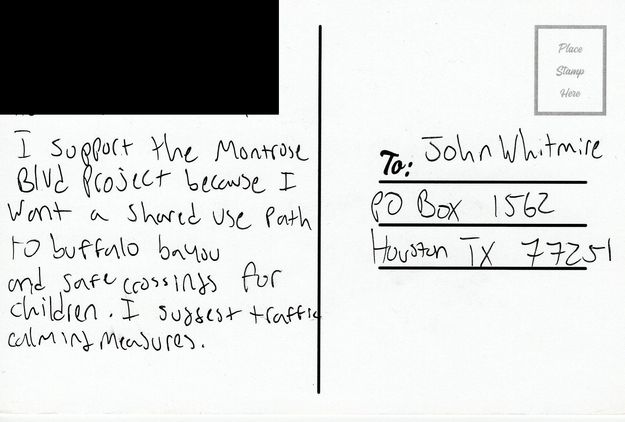 I support the Montrose
Blvd Project because I
want a shared use path
to buffalo bayou
and safe crossings for
children. I suggest traffic
calming measures.
Place
Stamp
Here
To: John Whitmire
PO Box 1562
Houston TX 77251